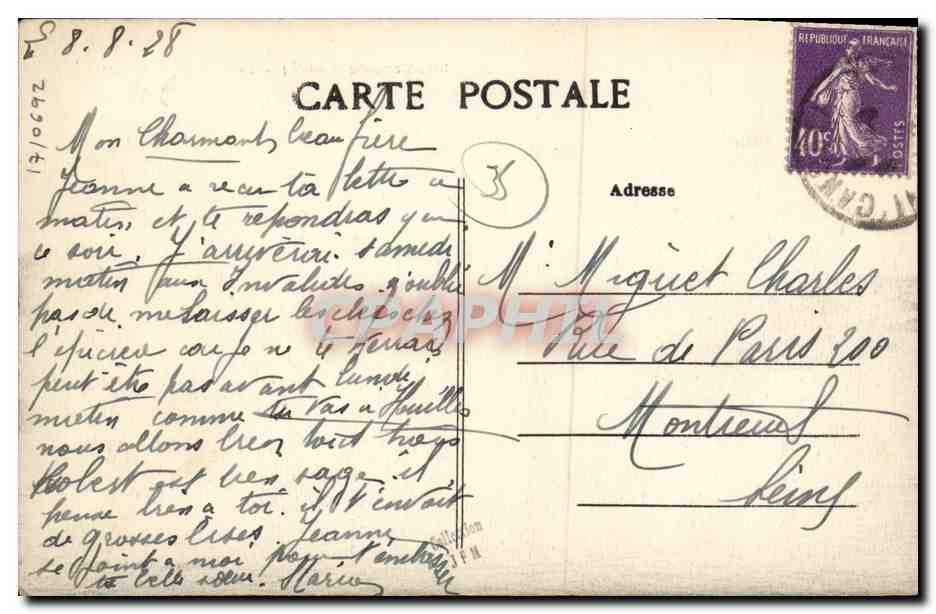 8.8.28
17/0692
REPUBLIQUE FRANÇAISE
40c
POSTES
CARTE POSTALE
Mon Charmant beau frère
Jeanne a recu ta lettre ce
matin et te repondras que
ce soir. J'arriverai samedi
matin aux Invalides n'oublie
pas de me laisser les clés chez
l'épicier car je ne te verrais
peut être pas avant lundi
matin comme tu vas a Houilles
nous allons bien tout trois
Robert est bien sage il
pense bien à toi. il t'envoit
de grosses bises. Jeanne
se joint a moi pour t'embrasser
ta belle sœur. Maria
35
Adresse
Mr Miquet Charles
Rue de Paris 200
Montreuil
Seine
Collection
J F M
CPAPHIL